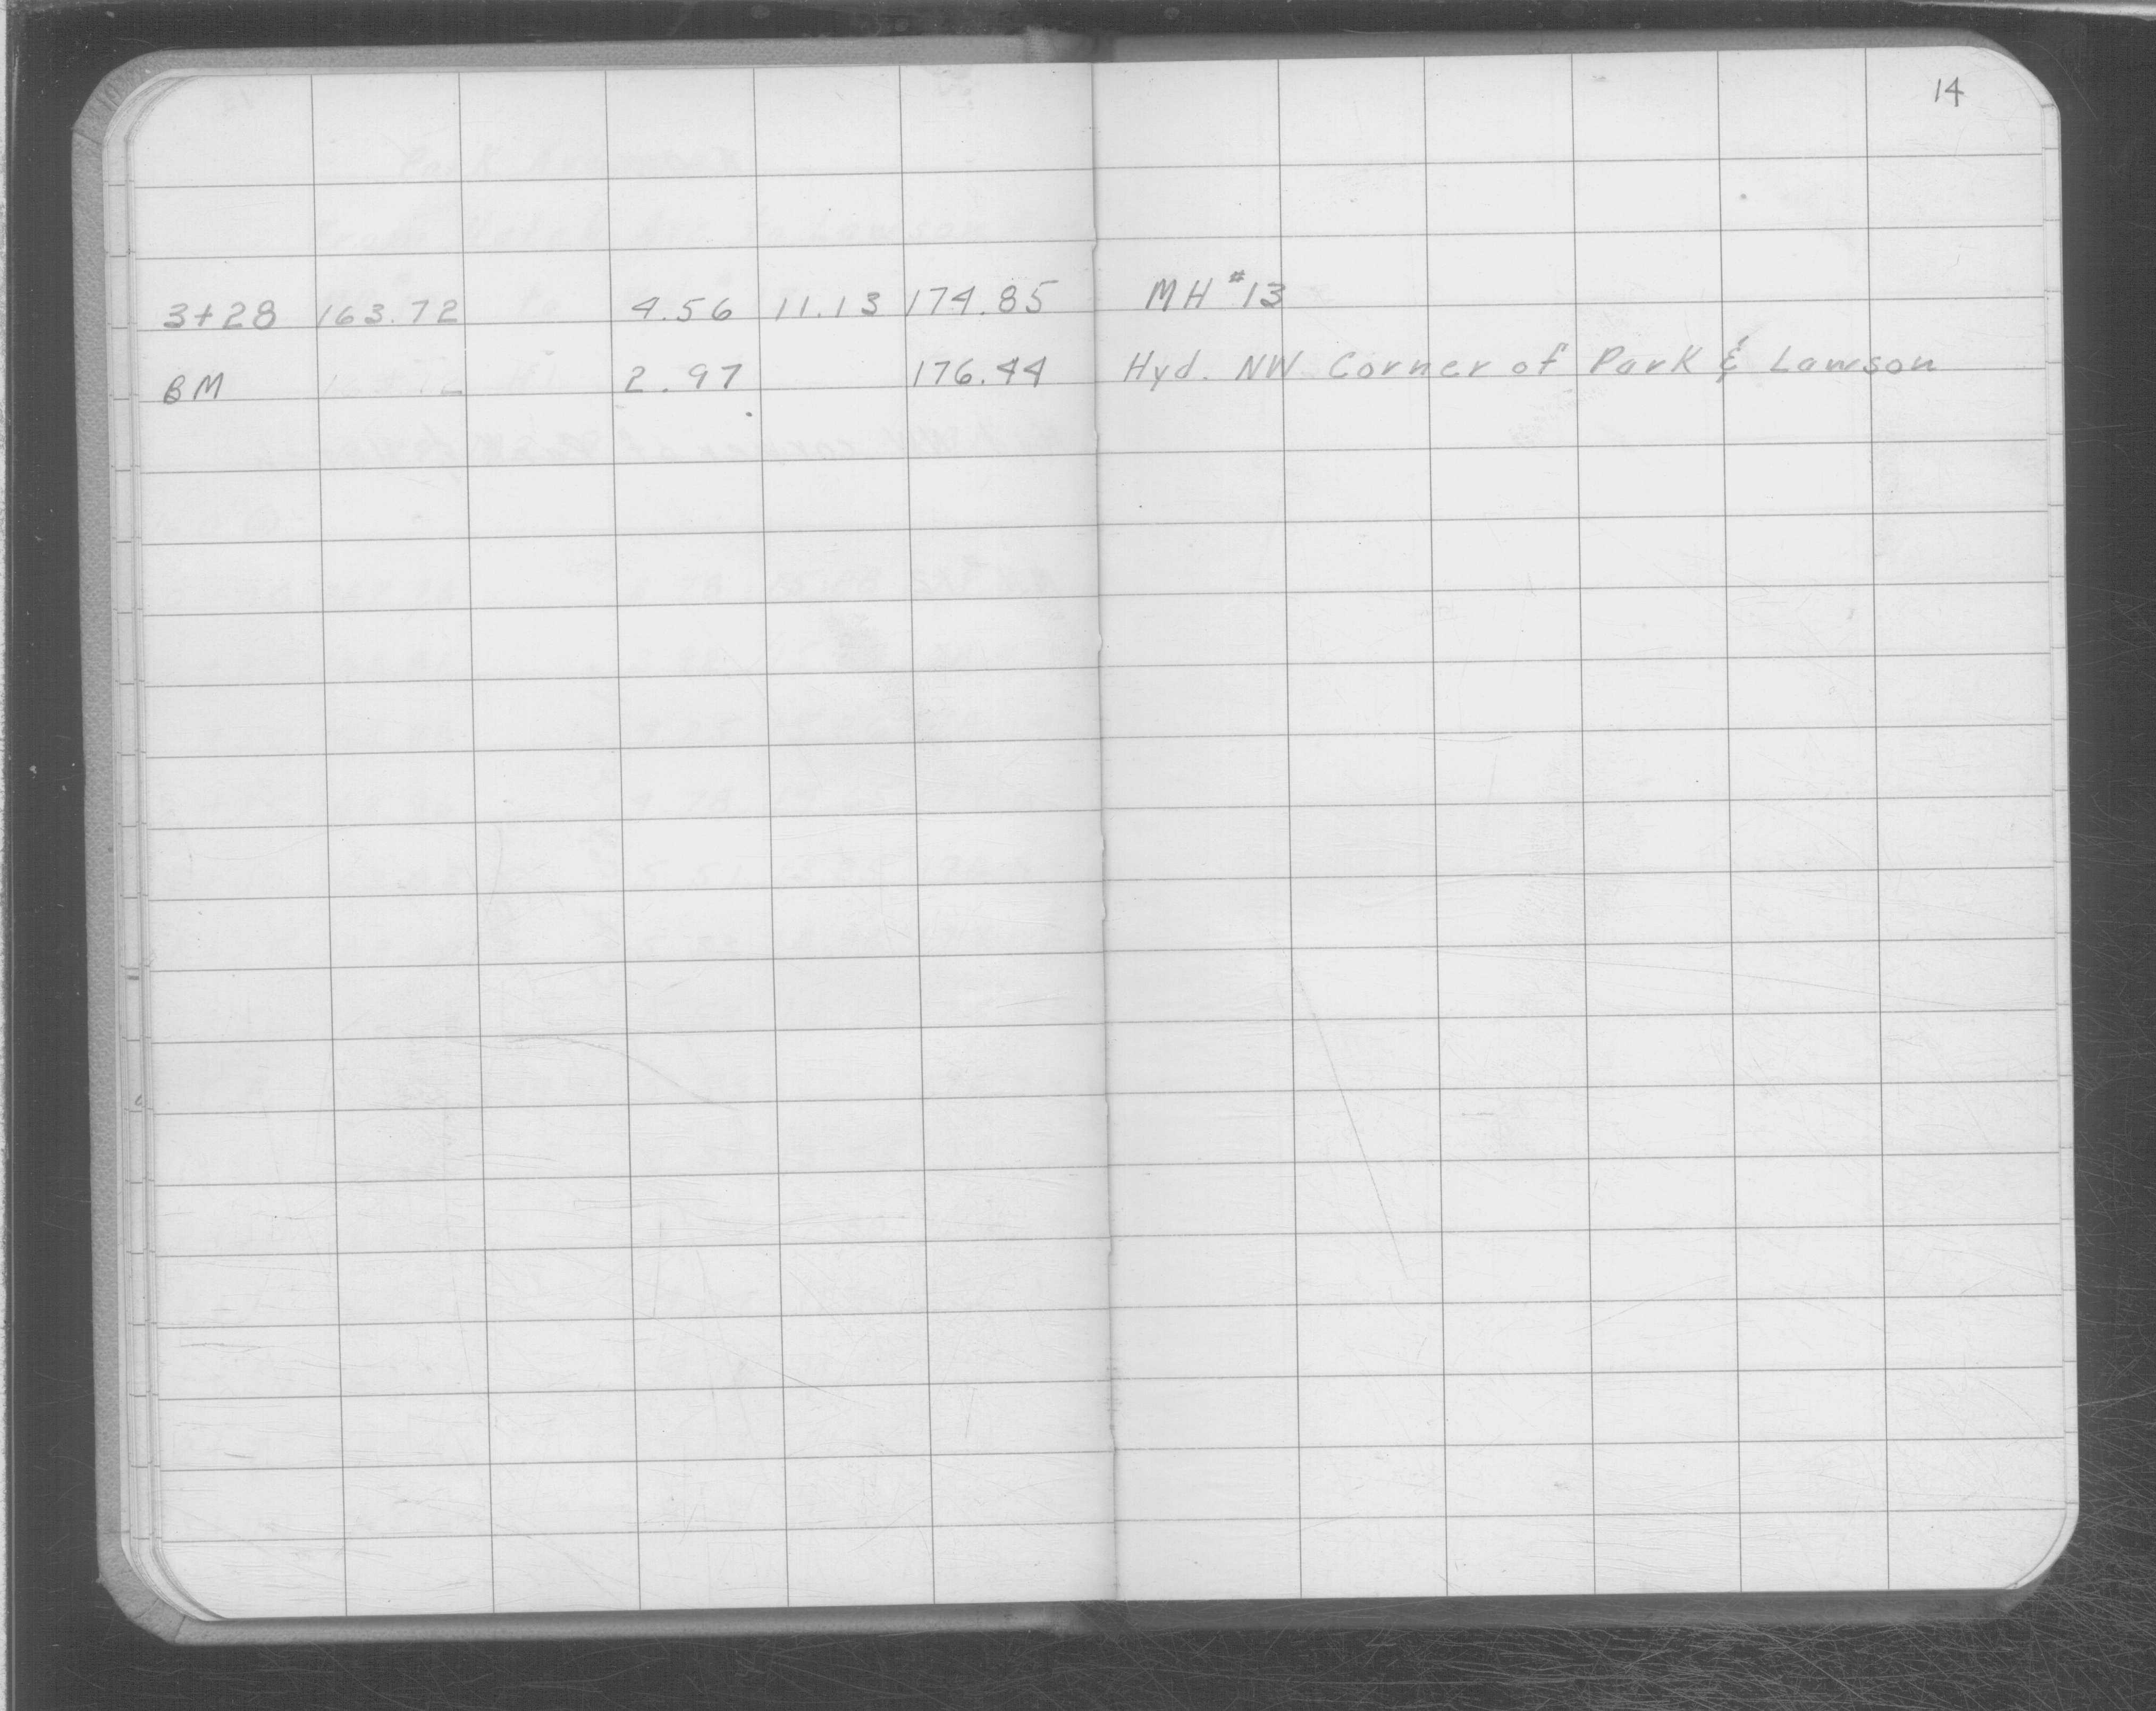 14
3+28 163.72 4.56 11.13 174.85 MH #13
BM 2.97 176.44 Hyd. NW Corner of Park & Lawson